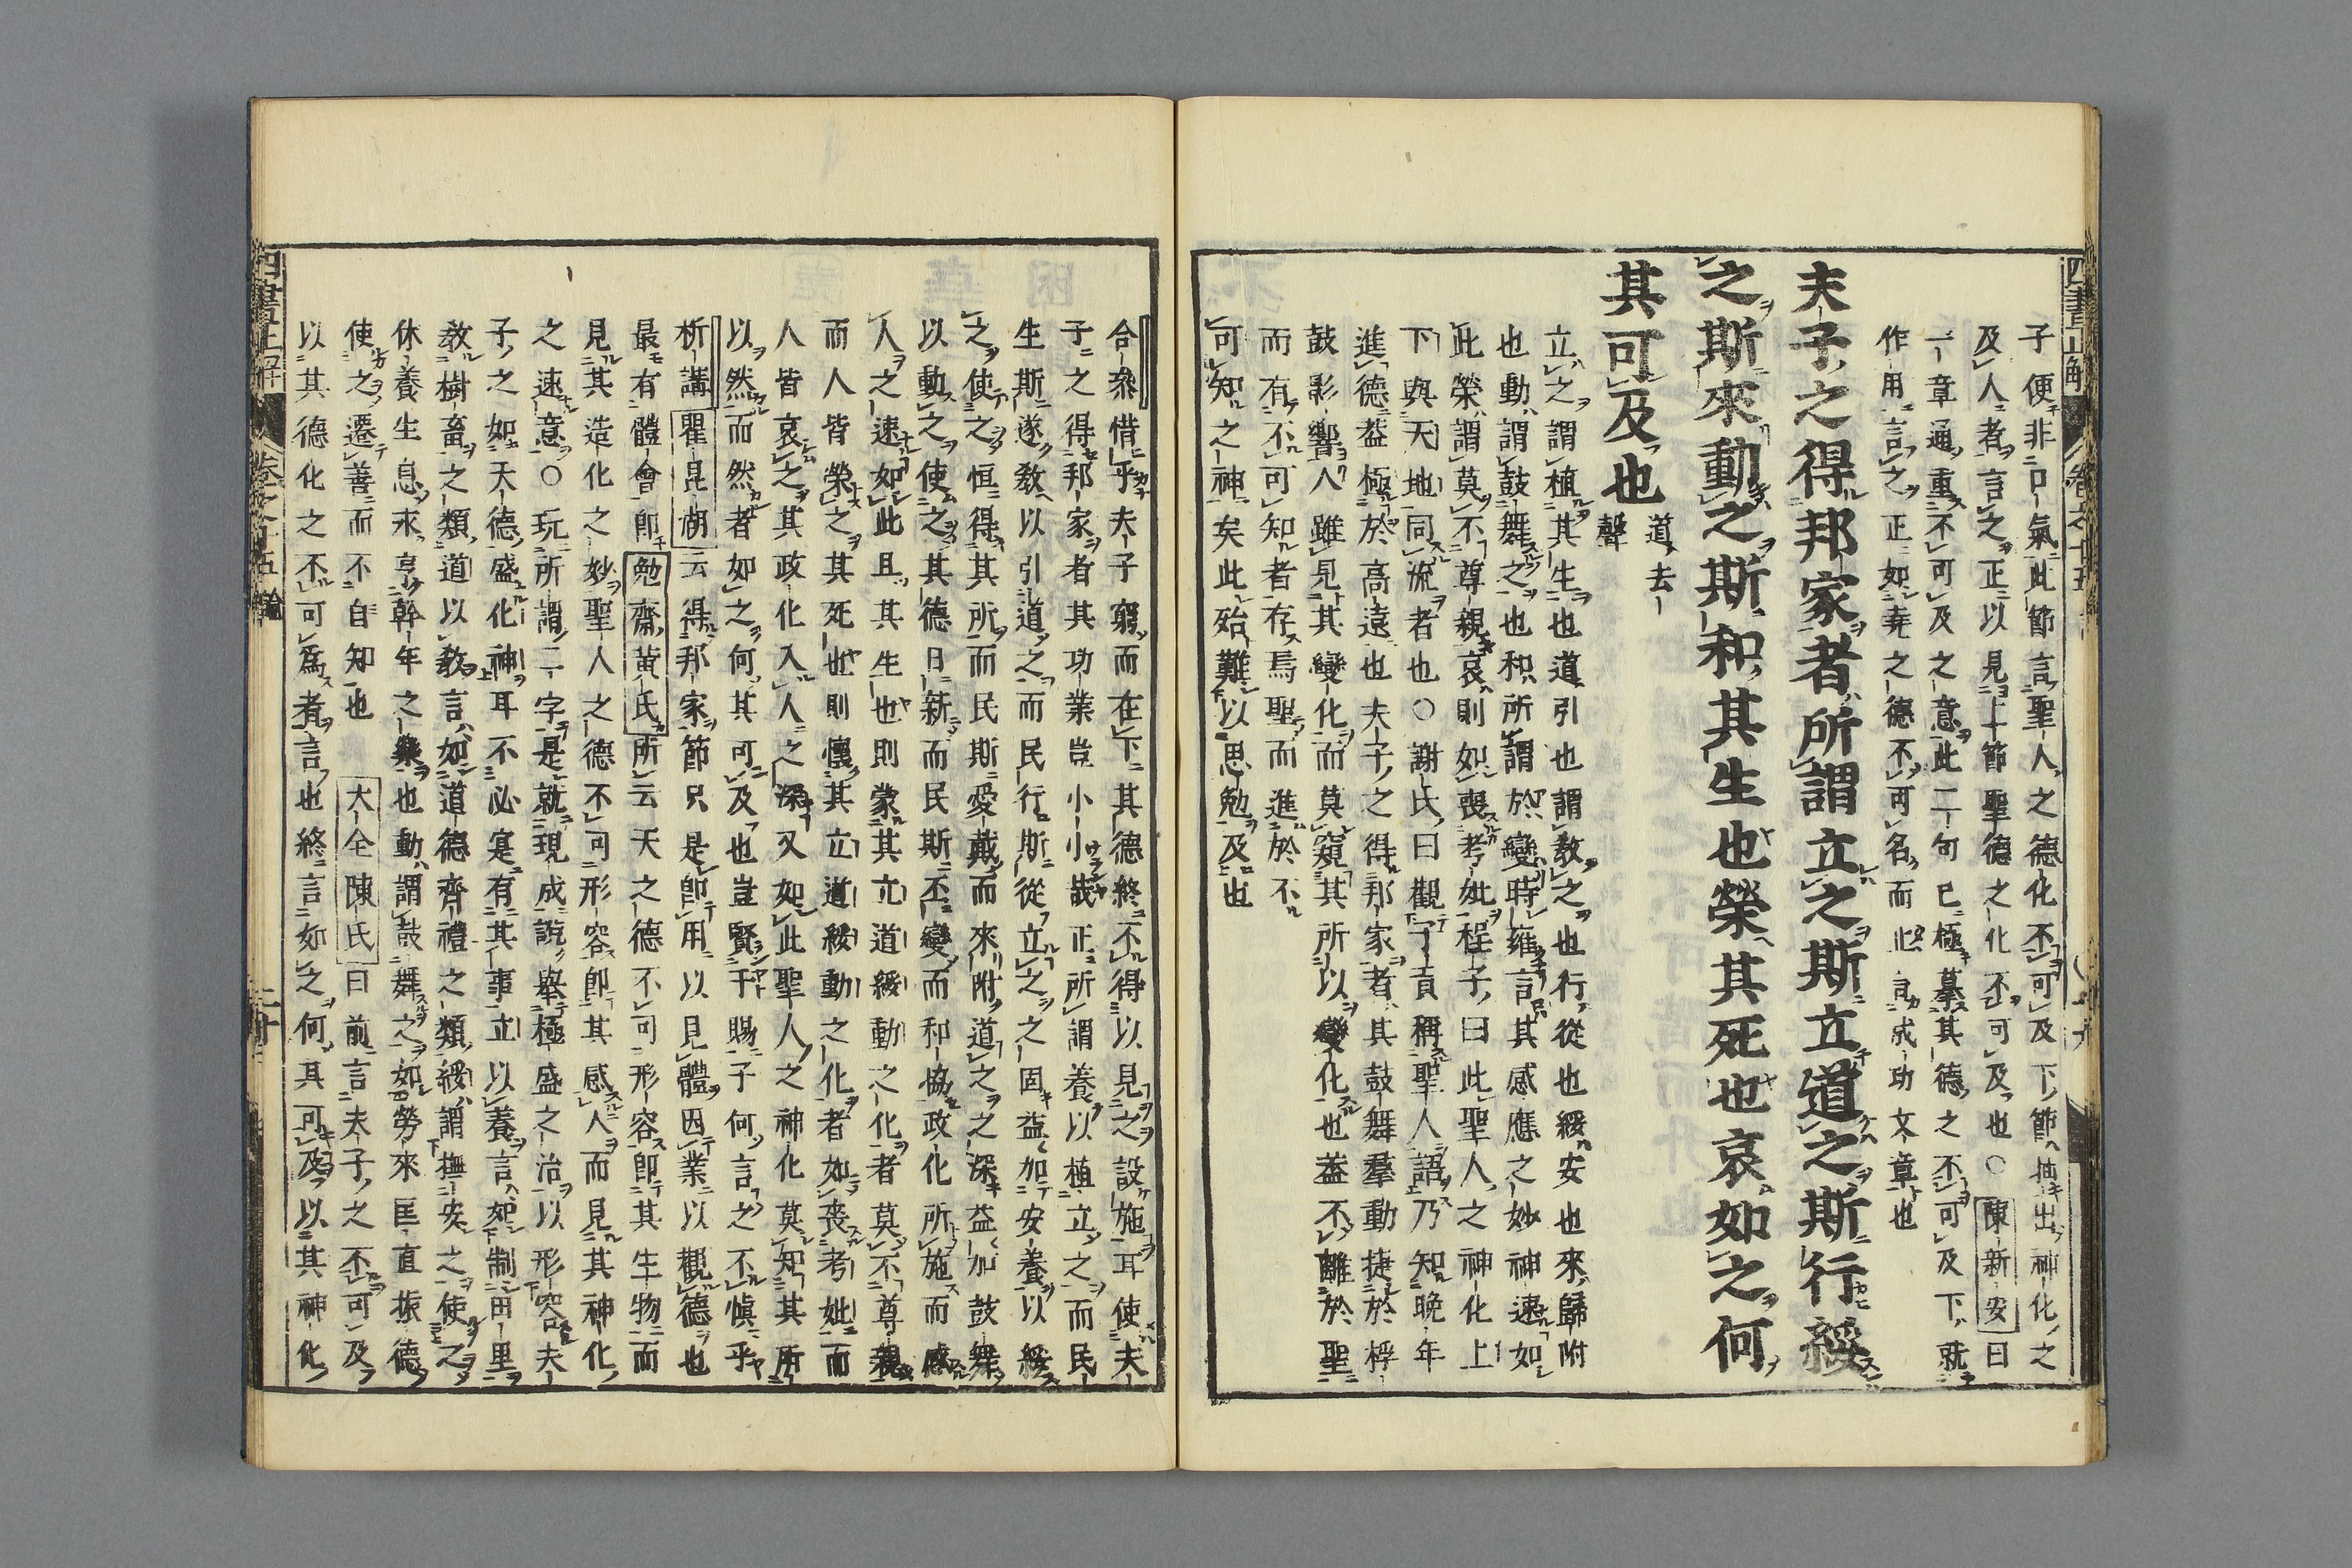 子便非口氣此節言聖人之德化不可及下節抽出神化之
及人者言之正以見上節聖德之化不可及也○陳新安曰
一章通重不可及之意此二句已極摹其德之不可及下就
作用言之正如堯之德不可名而止言成功文章也
夫子之得邦家者所謂立之斯立道之斯行綏
之斯來動之斯和其生也榮其死也哀如之何
其可及也
道去
聲
立之謂植其生也道引也謂教之也行從也綏安也來歸附
也動謂鼓舞之也和所謂於變時雍言其感應之妙神速如
此榮謂莫不尊親哀則如喪考妣程子曰此聖人之神化上
下與天地同流者也○謝氏曰觀子貢稱聖人語乃知晚年
進德益極於高遠也夫子之得邦家者其鼓舞羣動捷於桴
鼓影響人雖見其變化而莫窺其所以變化也蓋不離於聖
而有不可知者存焉聖而進於不
可知之神矣此殆難以思勉及也
四書正解 卷之十五
合叅惜乎夫子窮而在下其德終不得以見之設施耳使夫
子之得邦家者其功業豈小小哉正所謂養以植立之而民
生斯遂教以引道之而民行斯從立之之固益加安養以綏
之使之恒得其所而民斯愛戴而來附道之之深益加鼓舞
以動之使其德日新而民斯丕變而和協政化所施而感
人之速如此且其生也則蒙其立道綏動之化者莫不尊親
而人皆榮之其死也則懷其立道綏動之化者如喪考妣而
人皆哀之其政化入人之深又如此聖人之神化莫知其所
以然而然者如之何其可及也豈賢于賜子何言之不愼乎
析講瞿昆湖云得邦家節只是卽用以見體因業以觀德也
最有體會卽勉齋黃氏所云天之德不可形容卽其生物而
見其造化之妙聖人之德不可形容卽其感人而見其神化
之速意○玩所謂二字是就現成說舉極盛之治以形容夫
子之如天德盛化神耳不必寔有其事立以養言如制田里
教樹畜之類道以教言如道德齊禮之類綏謂撫安之使之
休養生息來享幹年之樂也動謂鼓舞之如勞來匡直振德
使之遷善而不自知也 大全陳氏曰前言夫子之不可及
以其德化之不可爲者言也終言如之何其可及以其神化
四書正解 卷之十五 論 二十